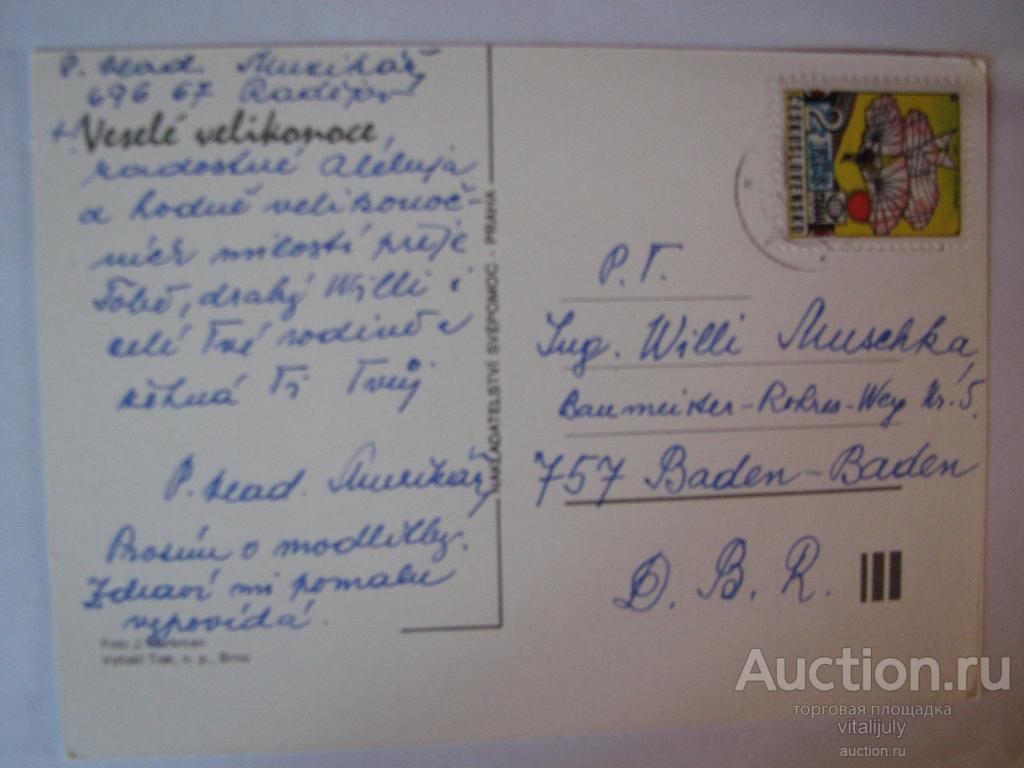 P. Vlad. Muzikář,
696 67 Radějov
Veselé velikonoce,
radostné Aleluja
a hodně velikonoč-
ních milostí přeje
Tobě, drahý Willi i
celé Tvé rodině a
žehná Ti Tvůj
P. Vlad. Muzikář,
Prosím o modlitby.
Zdraví mi pomalu
vypovídá.
Foto J.
Vytiskl Tisk, n. p., Brno
NAKLADATELSTVÍ SVÉPOMOC - PRAHA
ČESKOSLOVENSKO
2
P. T.
Ing. Willi Muschka,
Baumeister-Rohrer-Weg Nr. 5.
757 Baden-Baden
D. B. R.
Auction.ru
торговая площадка
vitalijuly
auction.ru